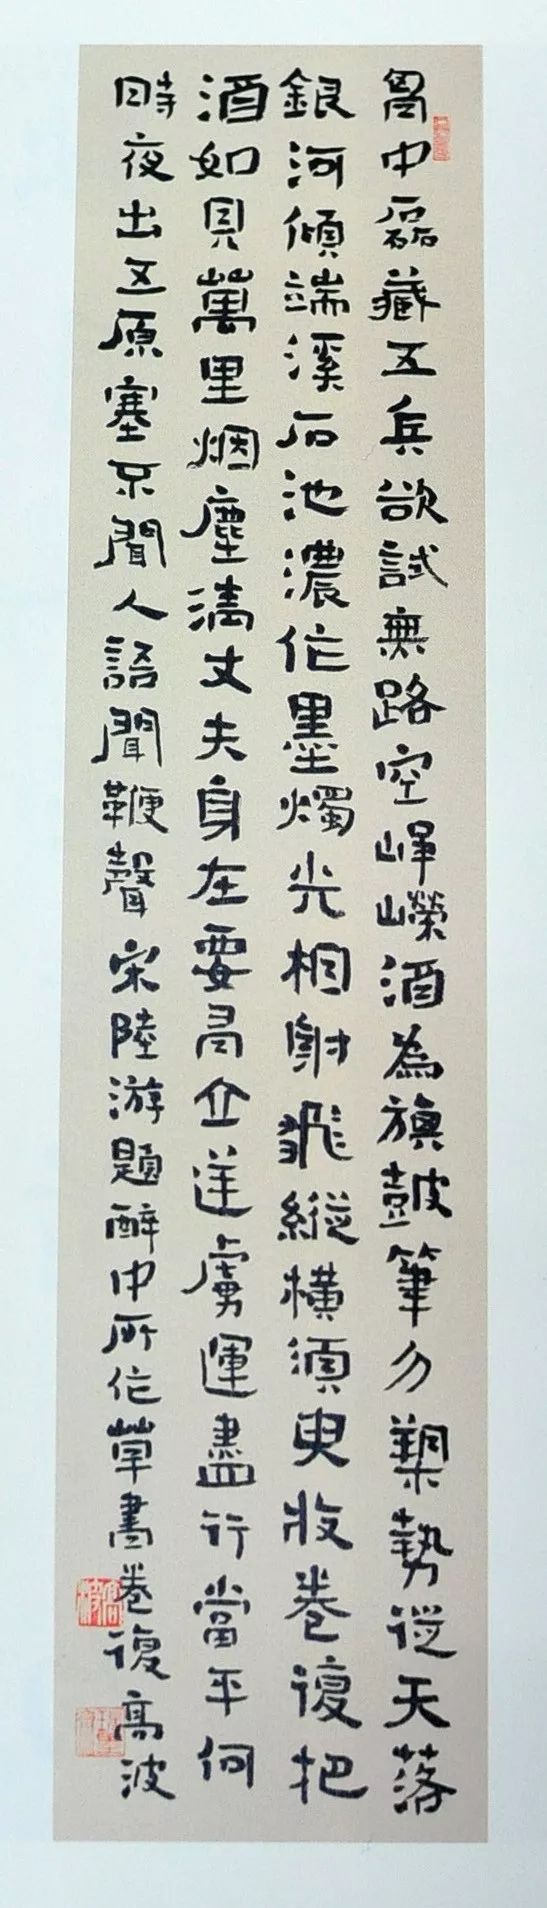 胷中磊藏五兵欲試無路空崢嶸酒為旗鼓筆刀槊勢從天落
銀河傾端溪石池濃作墨燭光相射飛縱橫須臾收卷復把
酒如見萬里烟塵清丈夫身在要有立逆虜運盡行當平何
時夜出五原塞不聞人語聞鞭聲宋陸游題醉中所作草書卷復高波